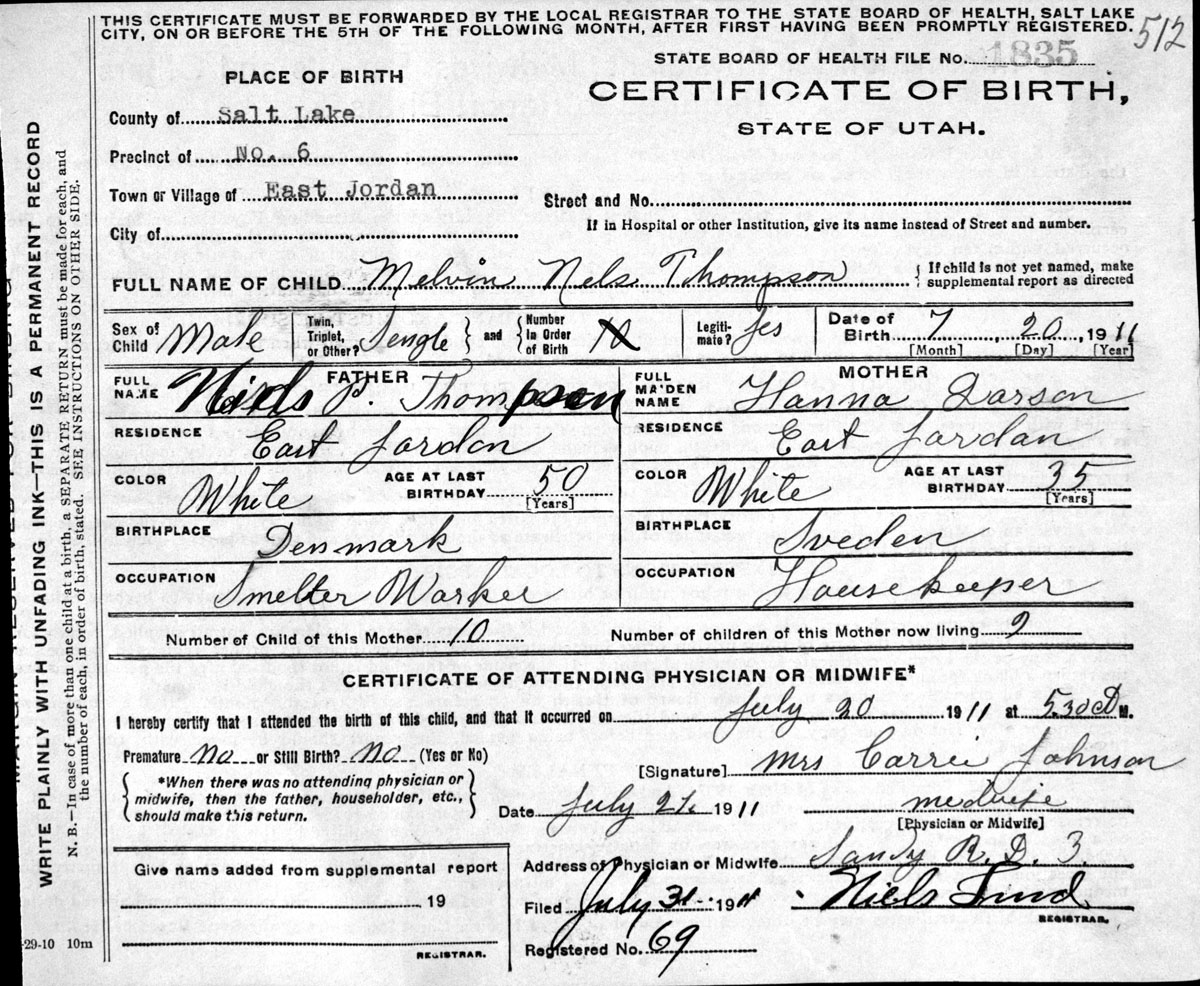 THIS CERTIFICATE MUST BE FORWARDED BY THE LOCAL REGISTRAR TO THE STATE BOARD OF HEALTH, SALT LAKE
CITY, ON OR BEFORE THE 5TH OF THE FOLLOWING MONTH, AFTER FIRST HAVING BEEN PROMPTLY REGISTERED.
512
STATE BOARD OF HEALTH FILE No. 1835
CERTIFICATE OF BIRTH,
STATE OF UTAH.
PLACE OF BIRTH
County of Salt Lake
Precinct of No. 6
Town or Village of East Jordan
City of
Street and No.
If in Hospital or other Institution, give its name instead of Street and number.
FULL NAME OF CHILD Melvin Nels Thompson { If child is not yet named, make
supplemental report as directed
Sex of Child Male
Twin, Triplet, or Other? Sengle } and { Number In Order of Birth
Legiti-mate? Yes
Date of Birth 7, 20, 1911
[Month] [Day] [Year]
FATHER
FULL NAME Niels P. Thompson
RESIDENCE East Jordon
COLOR White AGE AT LAST BIRTHDAY 50 [Years]
BIRTHPLACE Denmark
OCCUPATION Smelter Worker
MOTHER
FULL MAIDEN NAME Hanna Larson
RESIDENCE East Jordan
COLOR White AGE AT LAST BIRTHDAY 35 [Years]
BIRTHPLACE Sveden
OCCUPATION Housekeeper
Number of Child of this Mother 10 Number of children of this Mother now living 9
CERTIFICATE OF ATTENDING PHYSICIAN OR MIDWIFE*
I hereby certify that I attended the birth of this child, and that it occurred on July 20 1911 at 5.30 M.
Premature No or Still Birth? No (Yes or No)
{ *When there was no attending physician or
midwife, then the father, householder, etc.,
should make this return. }
[Signature] Mrs Carrie Johnson
Date July 21 1911
[Physician or Midwife]
Address of Physician or Midwife Sandy R. D. 3.
Filed July 31 1911 Niels Lind
REGISTRAR.
Registered No. 69
Give name added from supplemental report
19
REGISTRAR.
-29-10 10m
WRITE PLAINLY WITH UNFADING INK—THIS IS A PERMANENT RECORD
N. B.—In case of more than one child at a birth, a SEPARATE RETURN must be made for each, and
the number of each, in order of birth, stated. SEE INSTRUCTIONS ON OTHER SIDE.